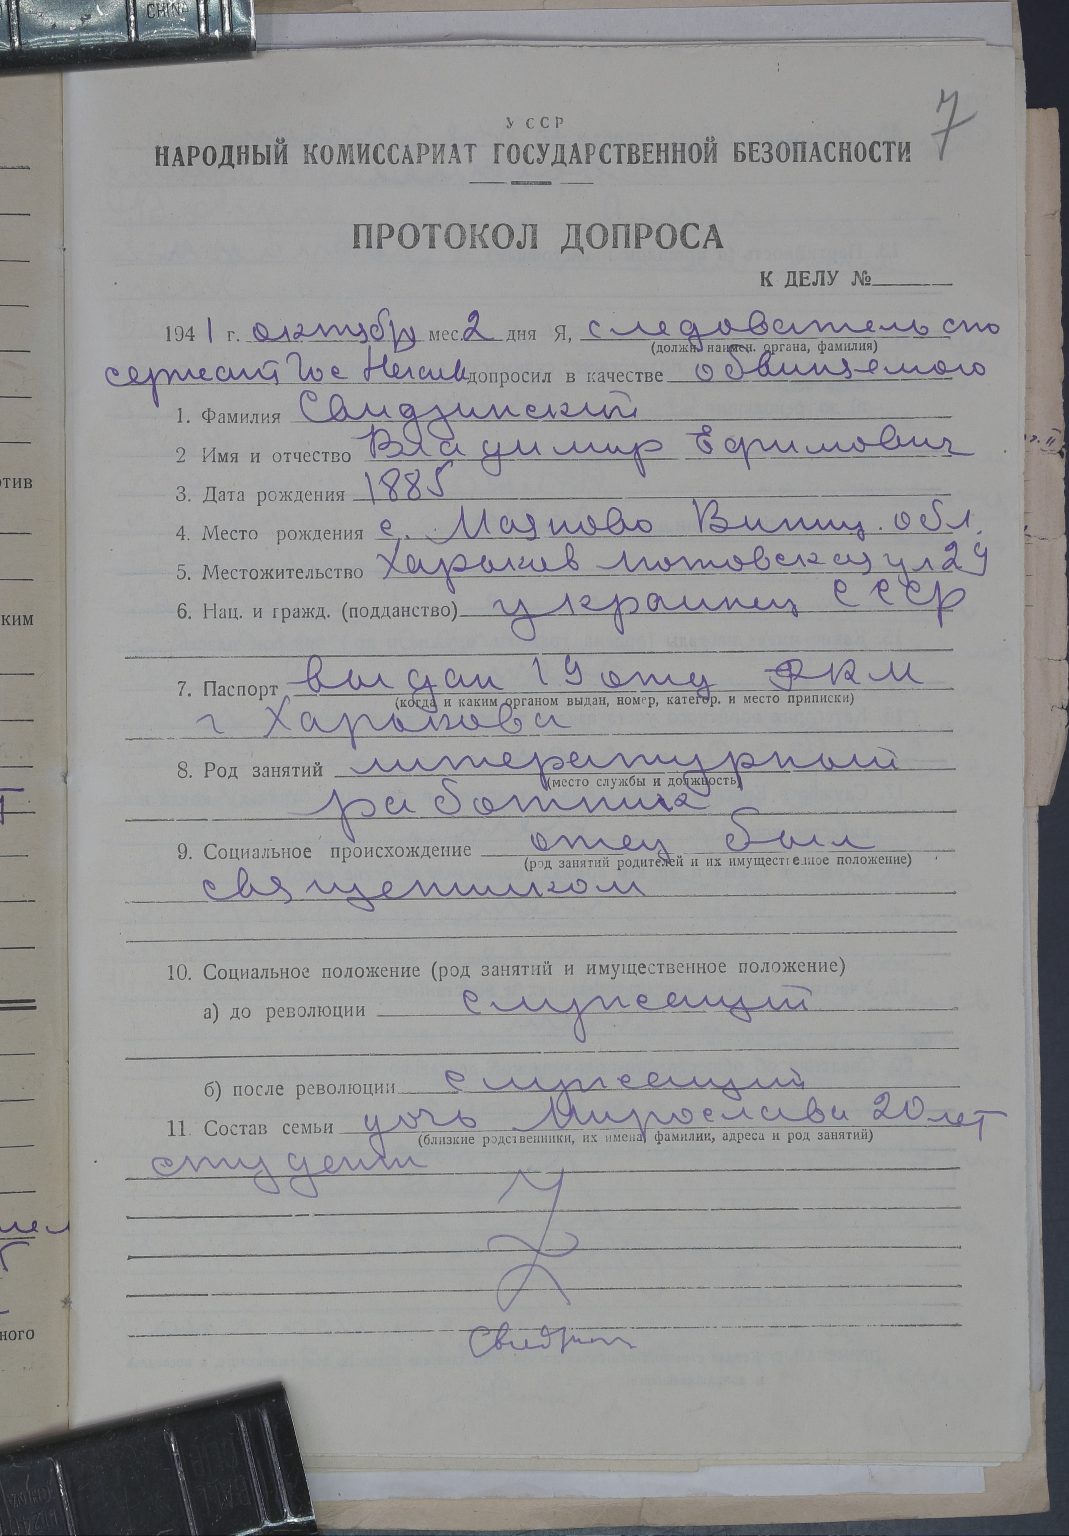 7
УССР
НАРОДНЫЙ КОМИССАРИАТ ГОСУДАРСТВЕННОЙ БЕЗОПАСНОСТИ
ПРОТОКОЛ ДОПРОСА
К ДЕЛУ №
1941 г. октября мес. 2 дня Я, следователь
(должн. наимен. органа, фамилия)
сержант Гос допросил в качестве обвиняемого
1. Фамилия Свидзинский
2 Имя и отчество Владимир Ефимович
3. Дата рождения 1885
4. Место рождения с. Маяново Винниц. обл.
5. Местожительство Харьков ул 29
6. Нац. и гражд. (подданство) украинец СССР
7. Паспорт выдан 19 отд РКМ
(когда и каким органом выдан, номер, категор. и место приписки)
г Харькова
8. Род занятий литературный
(место службы и должность)
работник
9. Социальное происхождение отец был
(род занятий родителей и их имущественное положение)
священником
10. Социальное положение (род занятий и имущественное положение)
а) до революции служащий
б) после революции служащий
11. Состав семьи дочь Мирослава 20 лет
(близкие родственники, их имена, фамилии, адреса и род занятий)
студент